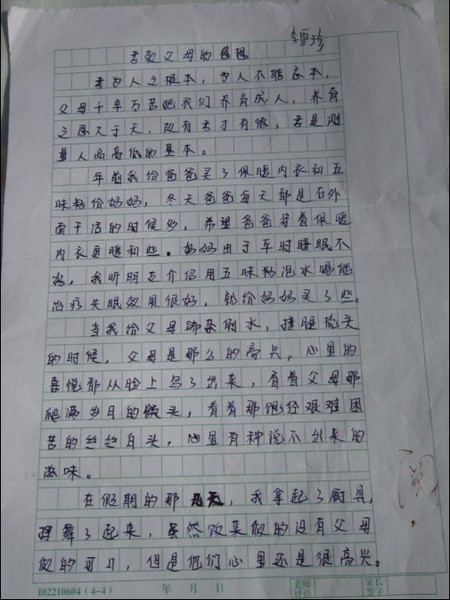 孝敬父母的感想
孝为人之根本，为人不能忘本，
父母千辛万苦把我们养育成人，养育
之恩大于天，故有孝才有德，孝是测
量人品高低的基本。
年前我给爸爸买了保暖内衣和五
味粉给妈妈，冬天爸爸每天都是在外
面干活的时候多，希望爸爸穿着保暖
内衣更暖和些。妈妈由于平时睡眠不
好，我听朋友介绍用五味粉泡水喝能
治疗失眠效果很好，就给妈妈买了些。
当我给父母端来刷水，捶腿梳头
的时候，父母是那么的高兴，心里的
喜悦都从脸上写了出来，看着父母那
爬满岁月的额头，看着那饱经艰难困
苦的丝丝白头，心里有种说不出来的
滋味。
在假期的那几天，我拿起了厨具，
挥舞了起来，虽然饭菜做的没有父母
做的可口，但是他们心里还是很高兴。
阅
I02210604 (4-4) 年 月 日 老师评语 家长签字